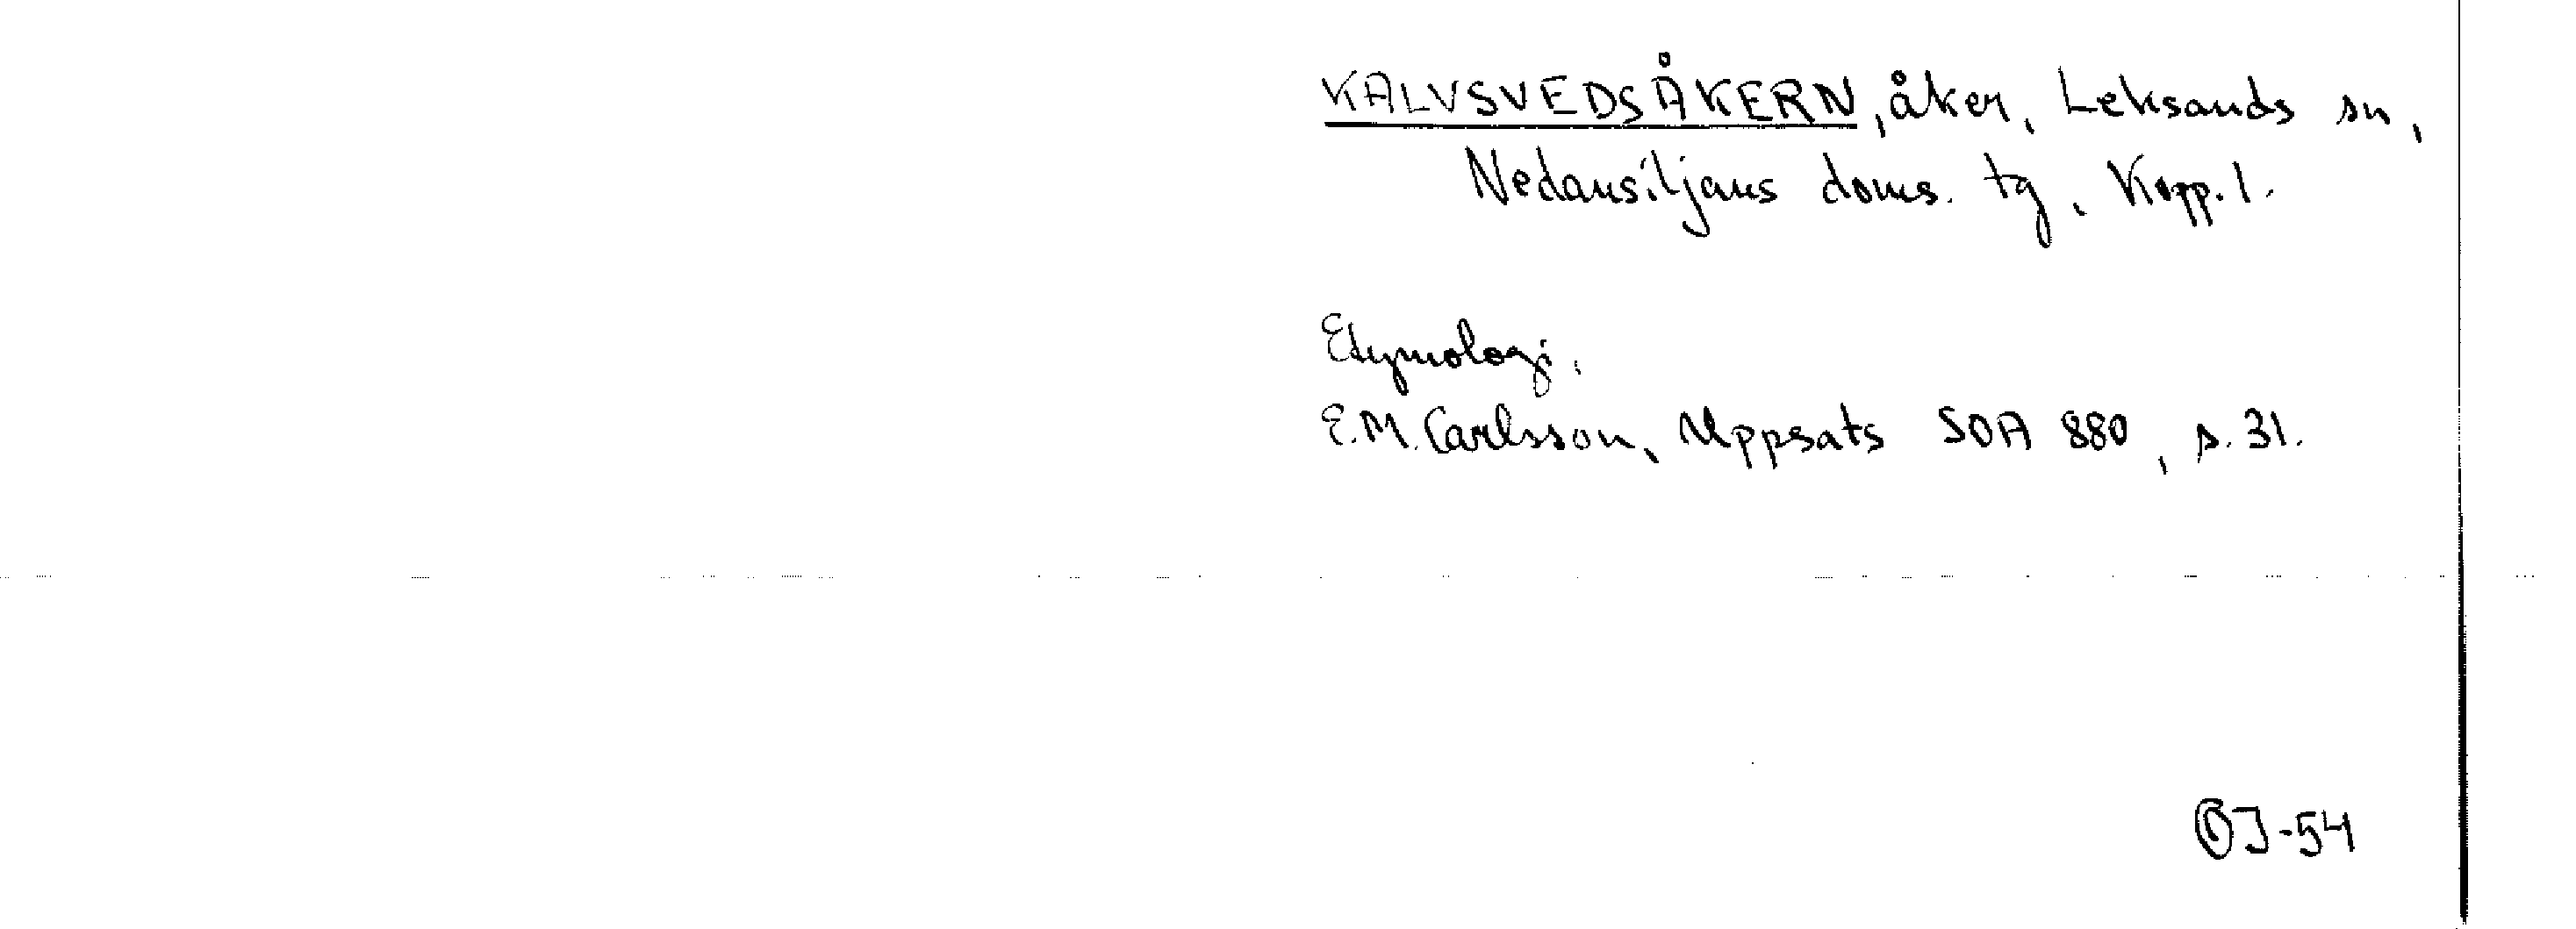 KALVSVEDSÅKERN, åker, Leksands sn,
Nedansiljans doms. tg, Kopp. l.
Etymologi.
E.M. Carlsson, Uppsats SOA 880, s. 31.
OJ-54